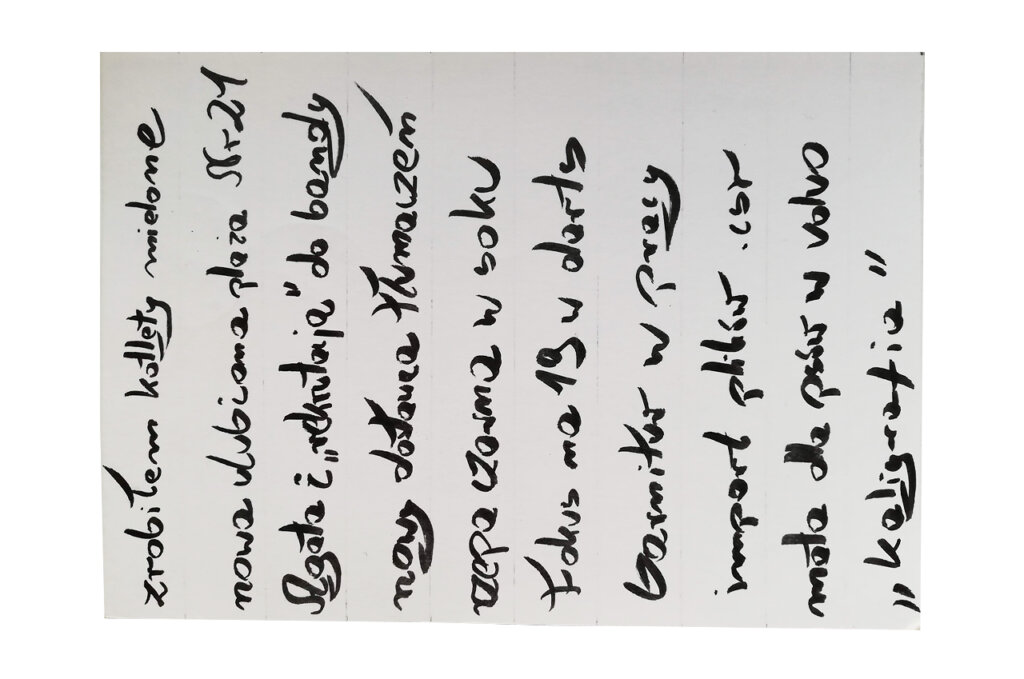 zrobiłem kotlety mielone
nowa ulubiona plaża Nr 21
Agata i „rekrutacja" do bandy
nowy dostawca tłumaczeń
rzepa czarna w soku
Fokus na 19 w darts
Garnitur w pracy
import plików .csv
mata dla psów w volvo
„kaligrafia"